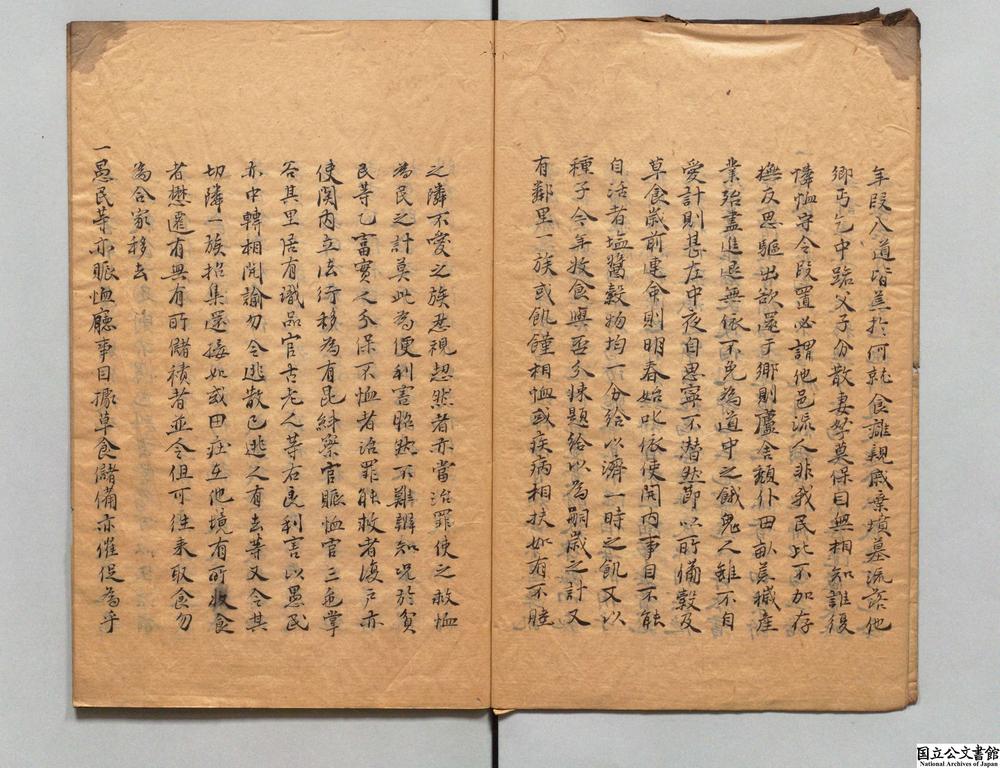 年段八道皆至於何就食離親戚棄墳墓流落他
鄉丐乞中路父子分散妻孥莫保目無相知誰復
憐恤守令段置必謂他邑流人非我民比不加存
撫反思驅出欲還于鄉則廬舍頹仆田畝蕪穢産
業殆盡進退無依不免為道中之餓鬼人雖不自
愛計則甚左中夜自思寧不潜然節以所備穀及
草食歲前連命則明春始叱依使関内事目不能
自活者塩醬穀物均一分給以濟一時之飢又以
種子令年收食與否分揀題給以為嗣歲之計又
有鄰里一族或飢饉相恤或疾病相扶如有不睦
之隣不愛之族忍視恝然者亦當治罪使之救恤
為民之計莫此為便利害昭然不難辨知况於貧
民等乙富實之介保不恤者治罪能救者復戶亦
使関内立法行移為有昆糾察官賑恤官三色掌
各其里居有識品官古老人等右良利害以愚民
亦中轉相開諭勿令逃散已逃人有去等又令其
切隣一族招集還接如或田庄在他境有所收食
者懋遷有無有所儲積者並令但可往来取食勿
為合家移去
一愚民等亦賑恤廳事目據草食儲備亦催促為乎
国立公文書館
National Archives of Japan